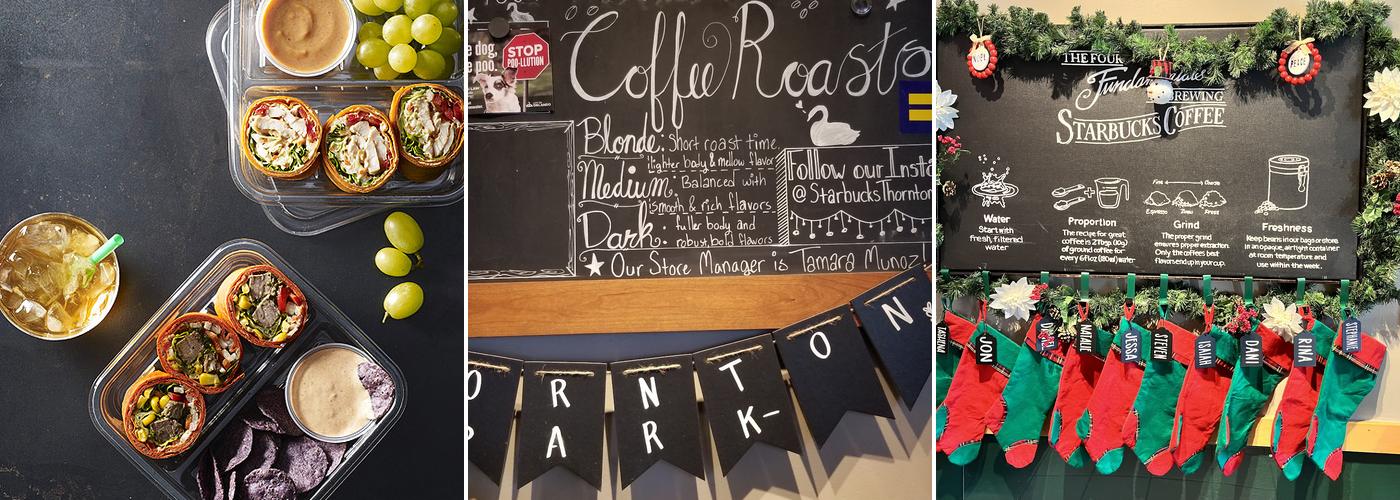 e dog,
e poo.
STOP
POO-LLUTION
Coffee Roasts
Blonde: Short roast time,
lighter body & mellow flavor
Medium: Balanced with
smooth & rich flavors
Dark: fuller body and
robust, bold flavors
Folllow our Insta
@StarbucksThornton
Our Store Manager is Tamara Munoz!
ORNTON
PARK-
NOEL
PEACE
THE FOUR
Fundamentals
BREWING
STARBUCKS COFFEE
Water
Start with
fresh, filtered
water
Proportion
The recipe for great
coffee is 2 Tbsp. (10g)
of ground coffee for
every 6 fl oz (180ml) water
Fine
Coarse
Espresso
Press
Grind
The proper grind
ensures proper extraction.
Only the coffee's best
flavors end up in your cup.
Freshness
Keep beans in our bags or store
in an opaque, airtight container
at room temperature and
use within the week.
JON
NATALIE
JESSA
STEVEN
ISAIAH
DANI
RINA
STEPHANIE